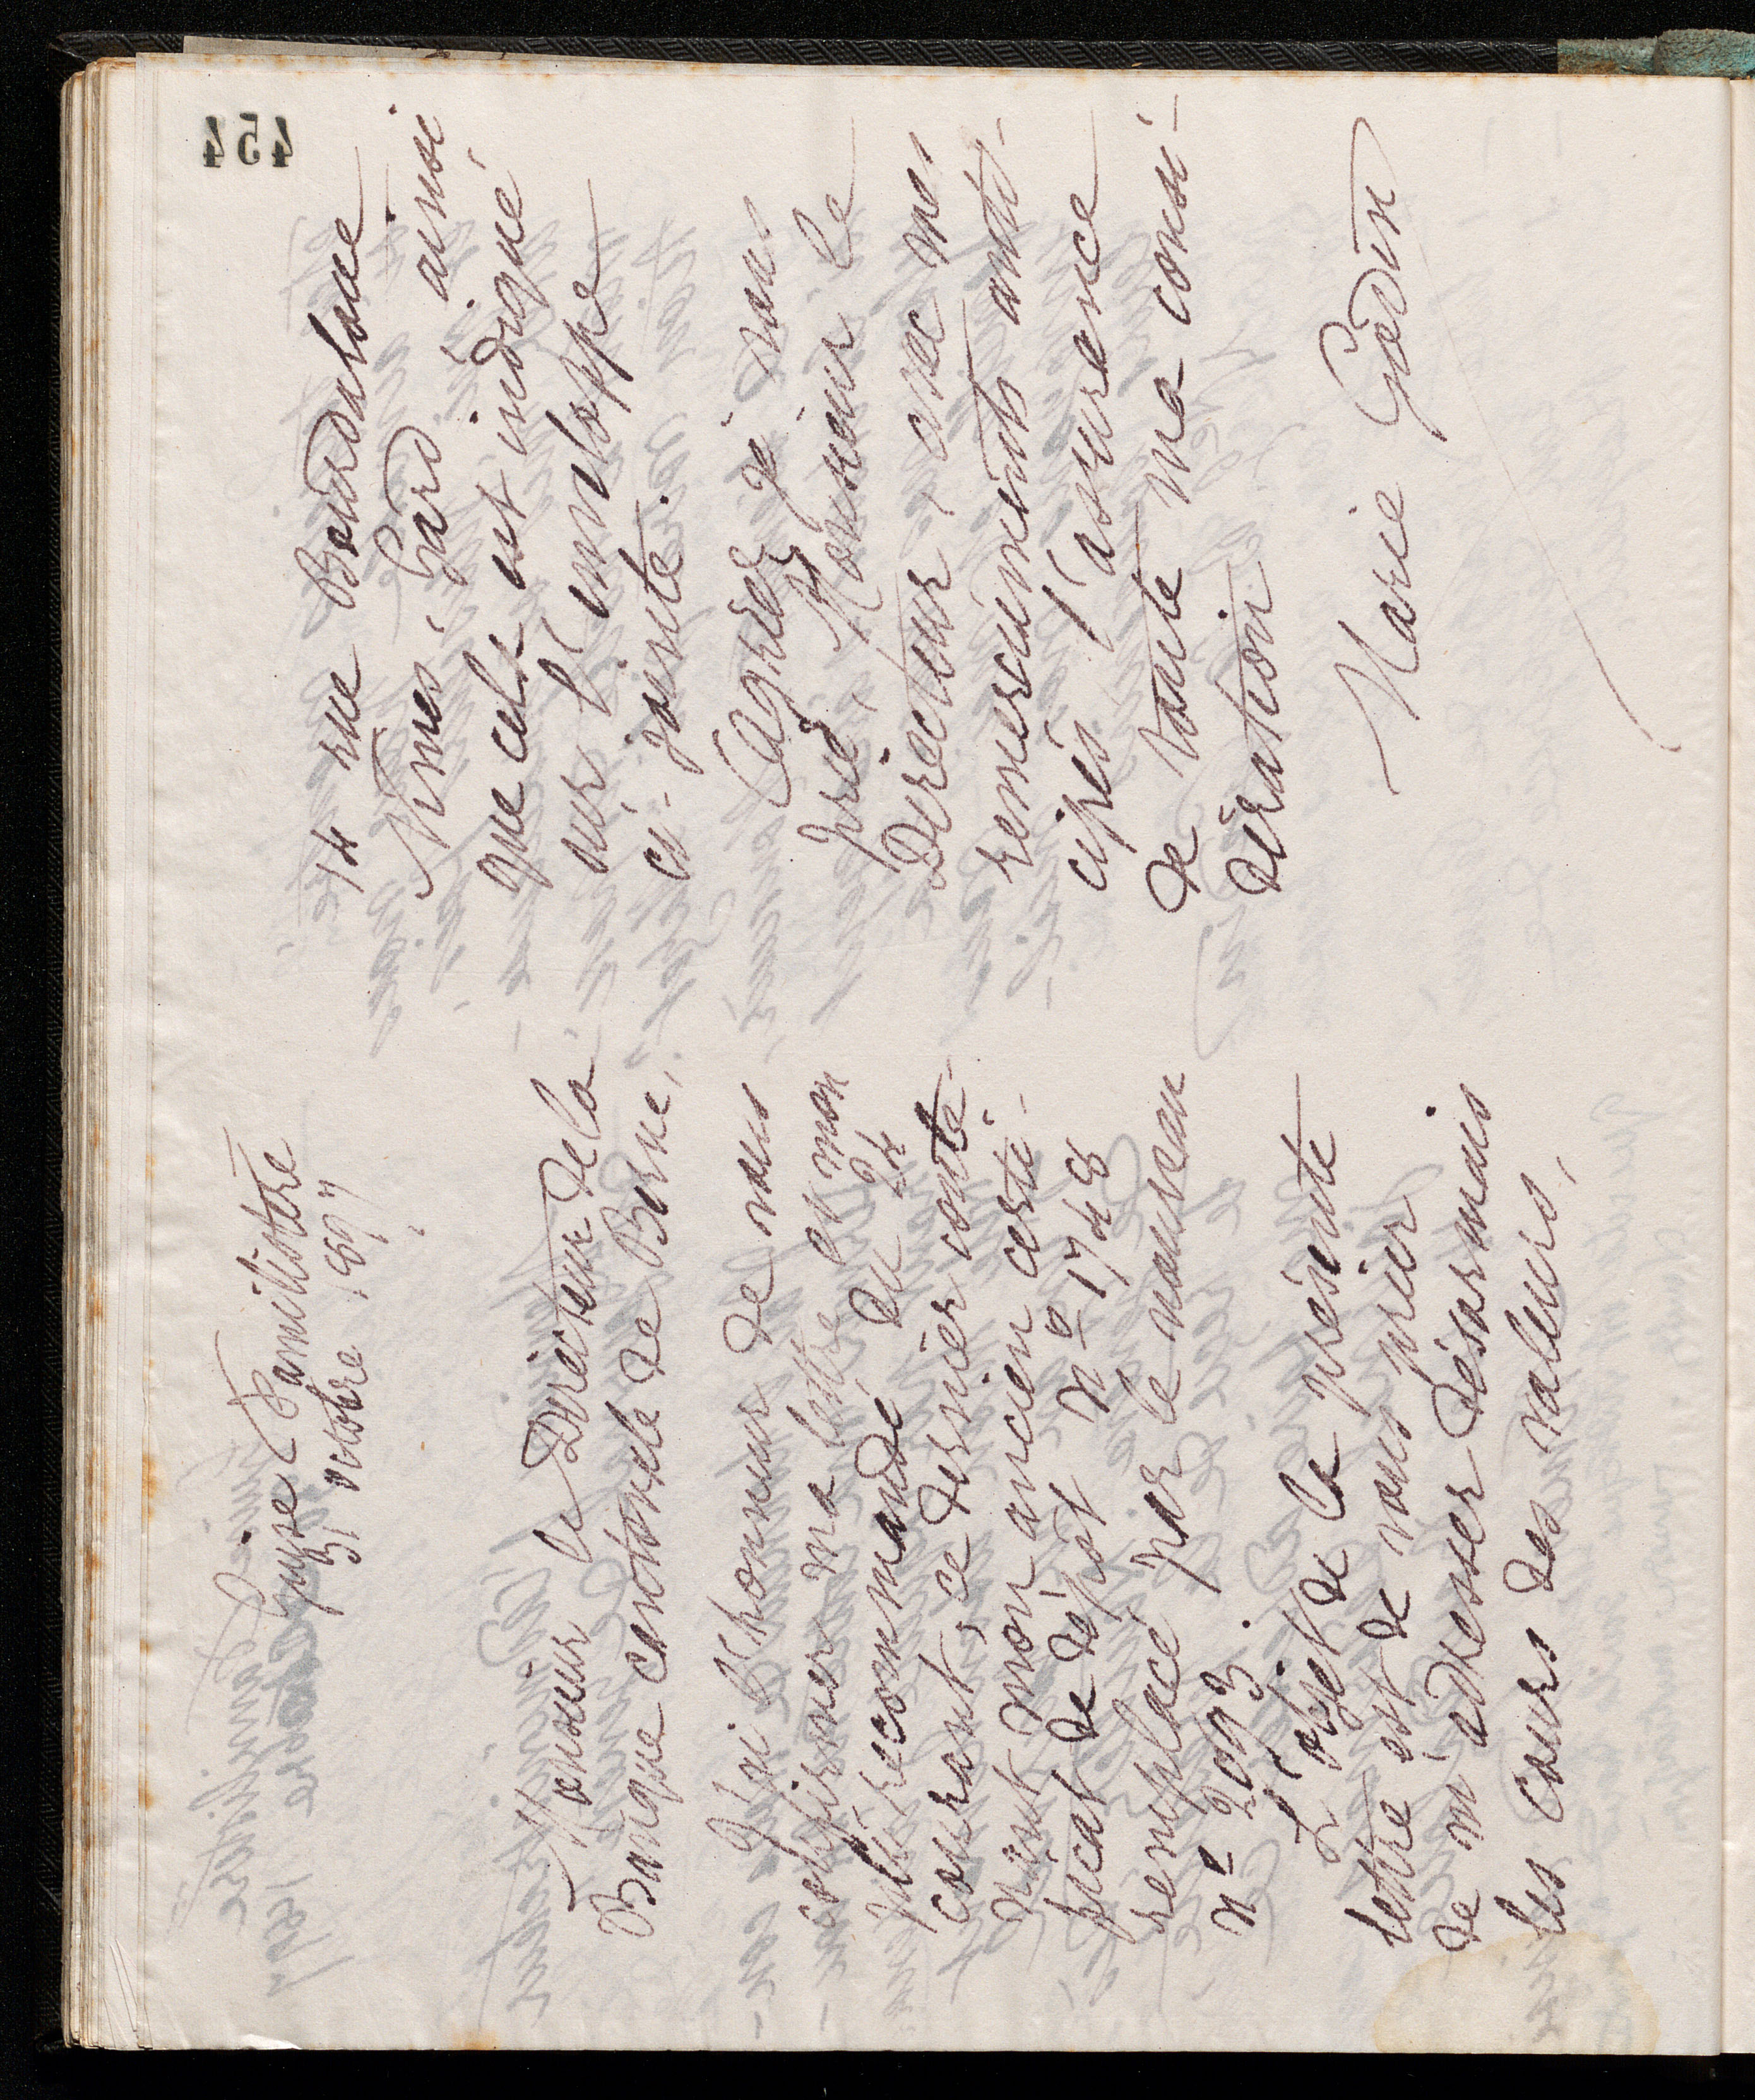 454
Guise Familistère
31 octobre 1897
Monsieur le Directeur de la
Banque cantonale de Berne,
J'ai l'honneur de vous
confirmer ma lettre et mon
pli recommandé du 24
courant, ce dernier conte-
nant mon ancien certi-
ficat de dépôt Nº 1748
remplacé par le nouveau
nº 2093.
L'objet de la présente
lettre est de vous prier
de m'adresser désormais
les cours des valeurs,
14 rue Bourdaloue
Nîmes, Gard ainsi
que cela est indiqué
sur l'enveloppe
ci-jointe.
Agréez je vous
prie, Monsieur le
Directeur, avec mes
remerciements anti-
cipés l'assurance
de toute ma consi-
dération
Marie Godin